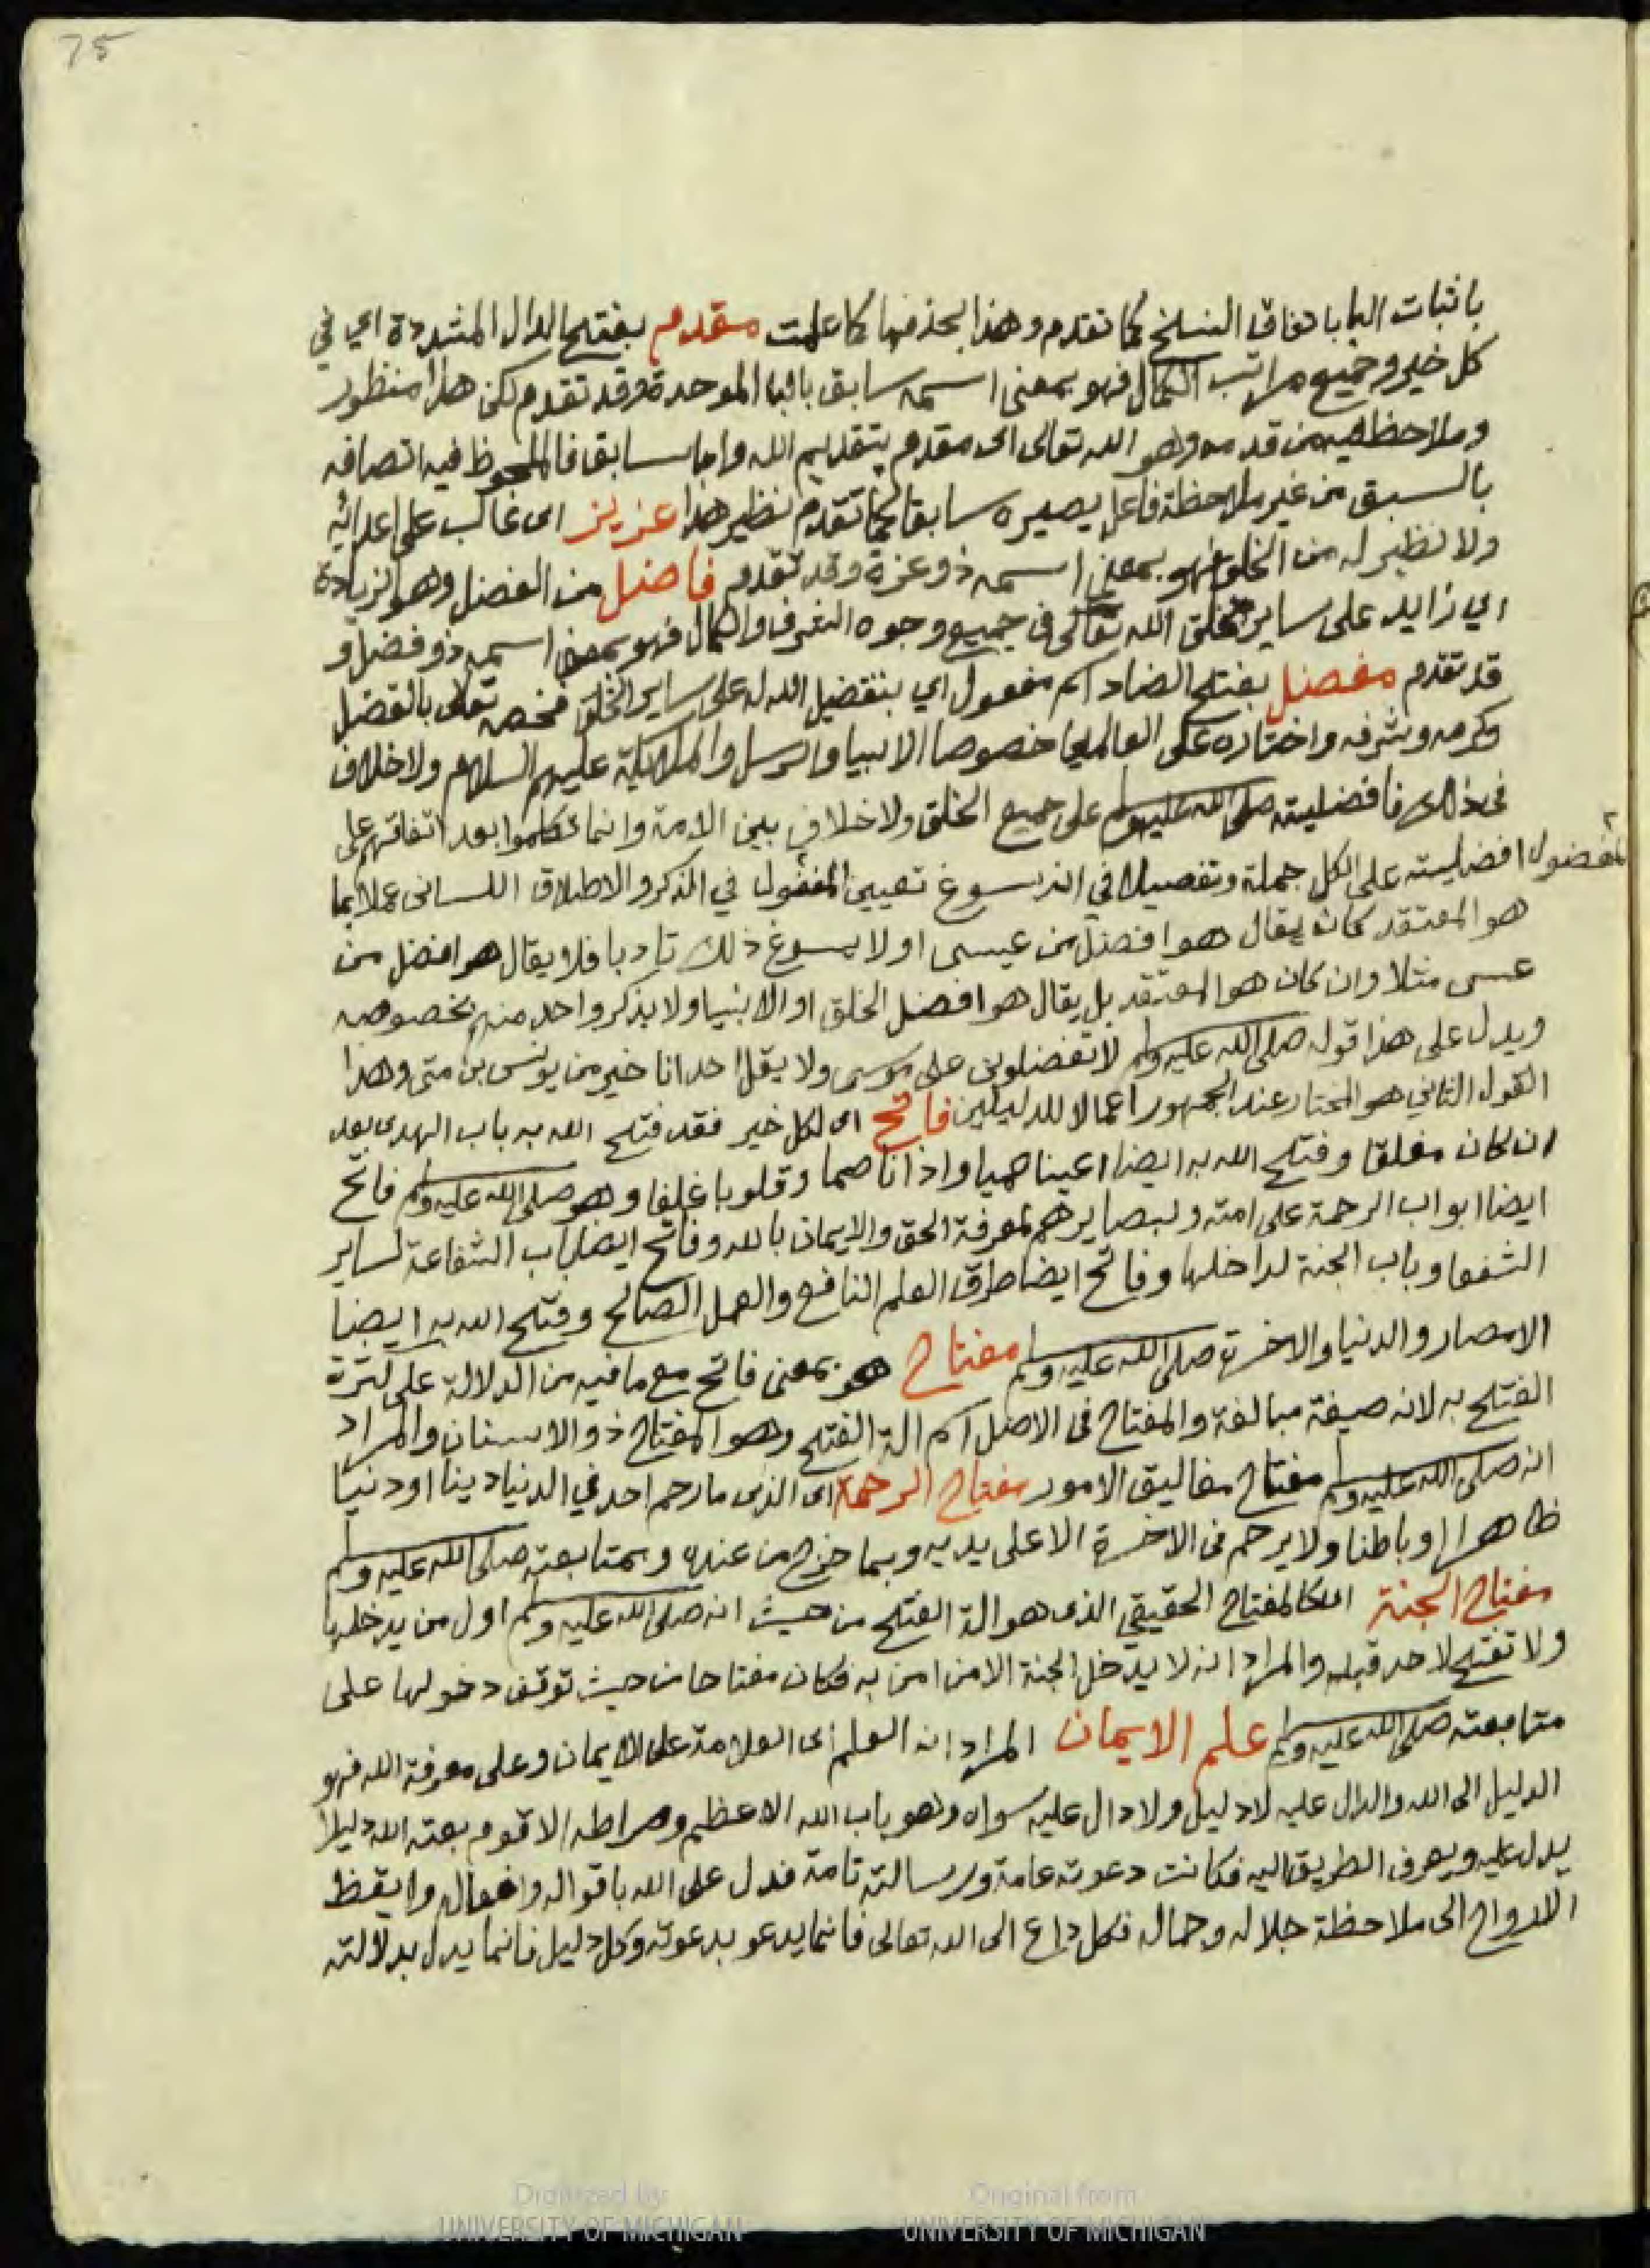 75
باثبات اليا باتفاق النسخ كما تقدم وهذا بحذفها كما علمت مقدم بفتح الدال المشددة اي في
كل خير وجميع مراتب الكمال فهو بمعنى اسمه سابق بالباء الموحدة وقد تقدم لكن هذا منظور
وملاحظ فيه من قدمه وهو الله تعالى اى مقدم بتقديم الله واما سابق فالملحوظ فيه اتصافه
بالسبق من غير ملاحظة فاعل يصيره سابقا كما تقدم نظير هذا عزيز اى غالب على اعدائه
ولا نظير له من الخلق فهو بمعنى اسمه ذو عزة وقد تقدم فاضل من الفضل وهو الزيادة
اي زايد على ساير خلق الله تعالى في جميع وجوه الشرف والكمال فهو بمعنى اسمه ذو فضل و
قد تقدم مفضل بفتح الضاد اسم مفعول اي بتفضيل الله له على ساير الخلق فخصه تعالى بالفضل
وكرمه وشرفه واختاره على العالمين خصوصا الانبيا والرسل والملايكة عليهم السلام ولا خلاف
في ذلك فافضليته صلى الله عليه وسلم على جميع الخلق ولا خلاف بين الامة وانما تكلموا بعد اتفاقهم على
افضليته على الكل جملة وتفصيلا في انه يسوغ تعيين المفضول في الذكر والاطلاق اللسانى عملا بما
المفضول
هو المعتقد كان يقال هو افضل من عيسى اولا يسوغ ذلك تادبا فلا يقال هو افضل من
عيسى مثلا وان كان هو المعتقد بل يقال هو افضل الخلق او الانبيا ولا يذكر واحد منهم بخصوصه
ويدل على هذا قوله صلى الله عليه وسلم لا تفضلونى على موسى ولا يقل احد انا خير من يونس بن متى وهذا
القول الثاني هو المختار عند الجمهور اعمالا للدليلين فاتح اى لكل خير فقد فتح الله به باب الهدى بعد
ان كان مغلقا وفتح الله به ايضا اعينا عميا واذانا صما وقلوبا غلفا وهو صلى الله عليه وسلم فاتح
ايضا ابواب الرحمة على امته ولبصايرهم لمعرفة الحق والايمان بالله وفاتح ايضا باب الشفاعة لساير
الشفعا وباب الجنة لداخلها وفاتح ايضا طرق العلم النافع والعمل الصالح وفتح الله به ايضا
الامصار والدنيا والاخرة صلى الله عليه وسلم مفتاح هو بمعنى فاتح مع ما فيه من الدلالة على كثرة
الفتح به لانه صيغة مبالغة والمفتاح في الاصل اسم الة الفتح وهو المفتاح ذو الاسنان والمراد
انه صلى الله عليه وسلم مفتاح مغاليق الامور مفتاح الرحمة اى الذى ما رحم احد في الدنيا دينا او دنيا
ظاهرا او باطنا ولا يرحم في الاخرة الا على يديه وبما خرج من عنده وبمتابعته صلى الله عليه وسلم
مفتاح الجنة اى كالمفتاح الحقيقي الذى هو الة الفتح من حيث انه صلى الله عليه وسلم اول من يدخلها
ولا تفتح لاحد قبله والمراد انه لا يدخل الجنة الا من امن به فكان مفتاحا من حيث توقف دخولها على
متابعته صلى الله عليه وسلم علم الايمان المراد انه العلم اى العلامة على الايمان وعلى معرفة الله فهو
الدليل الى الله والدال عليه لا دليل ولا دال عليه سواه وهو باب الله الاعظم وصراطه الاقوم بعثه الله دليلا
يدل عليه ويعرف الطريق اليه فكانت دعوته عامة ورسالته تامة فدل على الله باقواله وافعاله وايقظ
الارواح الى ملاحظة جلاله وجماله فكل داع الى الله تعالى فانما يدعو بدعوته وكل دليل فانما يدل بدلالته
Digitized by
UNIVERSITY OF MICHIGAN
Original from
UNIVERSITY OF MICHIGAN